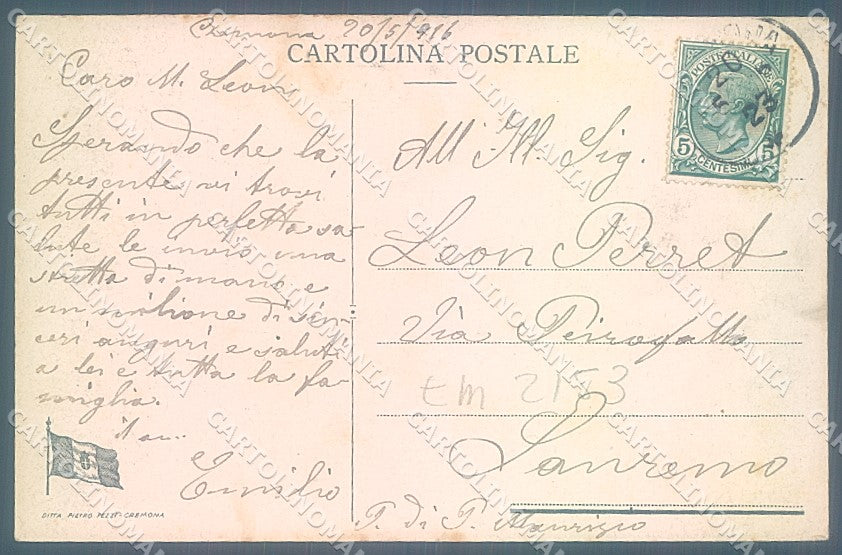 Cremona 20/5/916
CARTOLINA POSTALE
Caro M. Leon
Sperando che la
presente vi trovi
tutti in perfetta sa-
lute le invio una
stretta di mano e
un milione di sin-
ceri auguri e saluti
a lei e tutta la fa-
miglia.
Emilio
DITTA PIETRO PEZZI-CREMONA
POSTE ITALIANE
5 CENTESIMI 5
All' Ill. Sig.
Leon Perret
Via Peirogallo
em 2153
Sanremo
P. di P. Maurizio
CARTOLINOMANIA